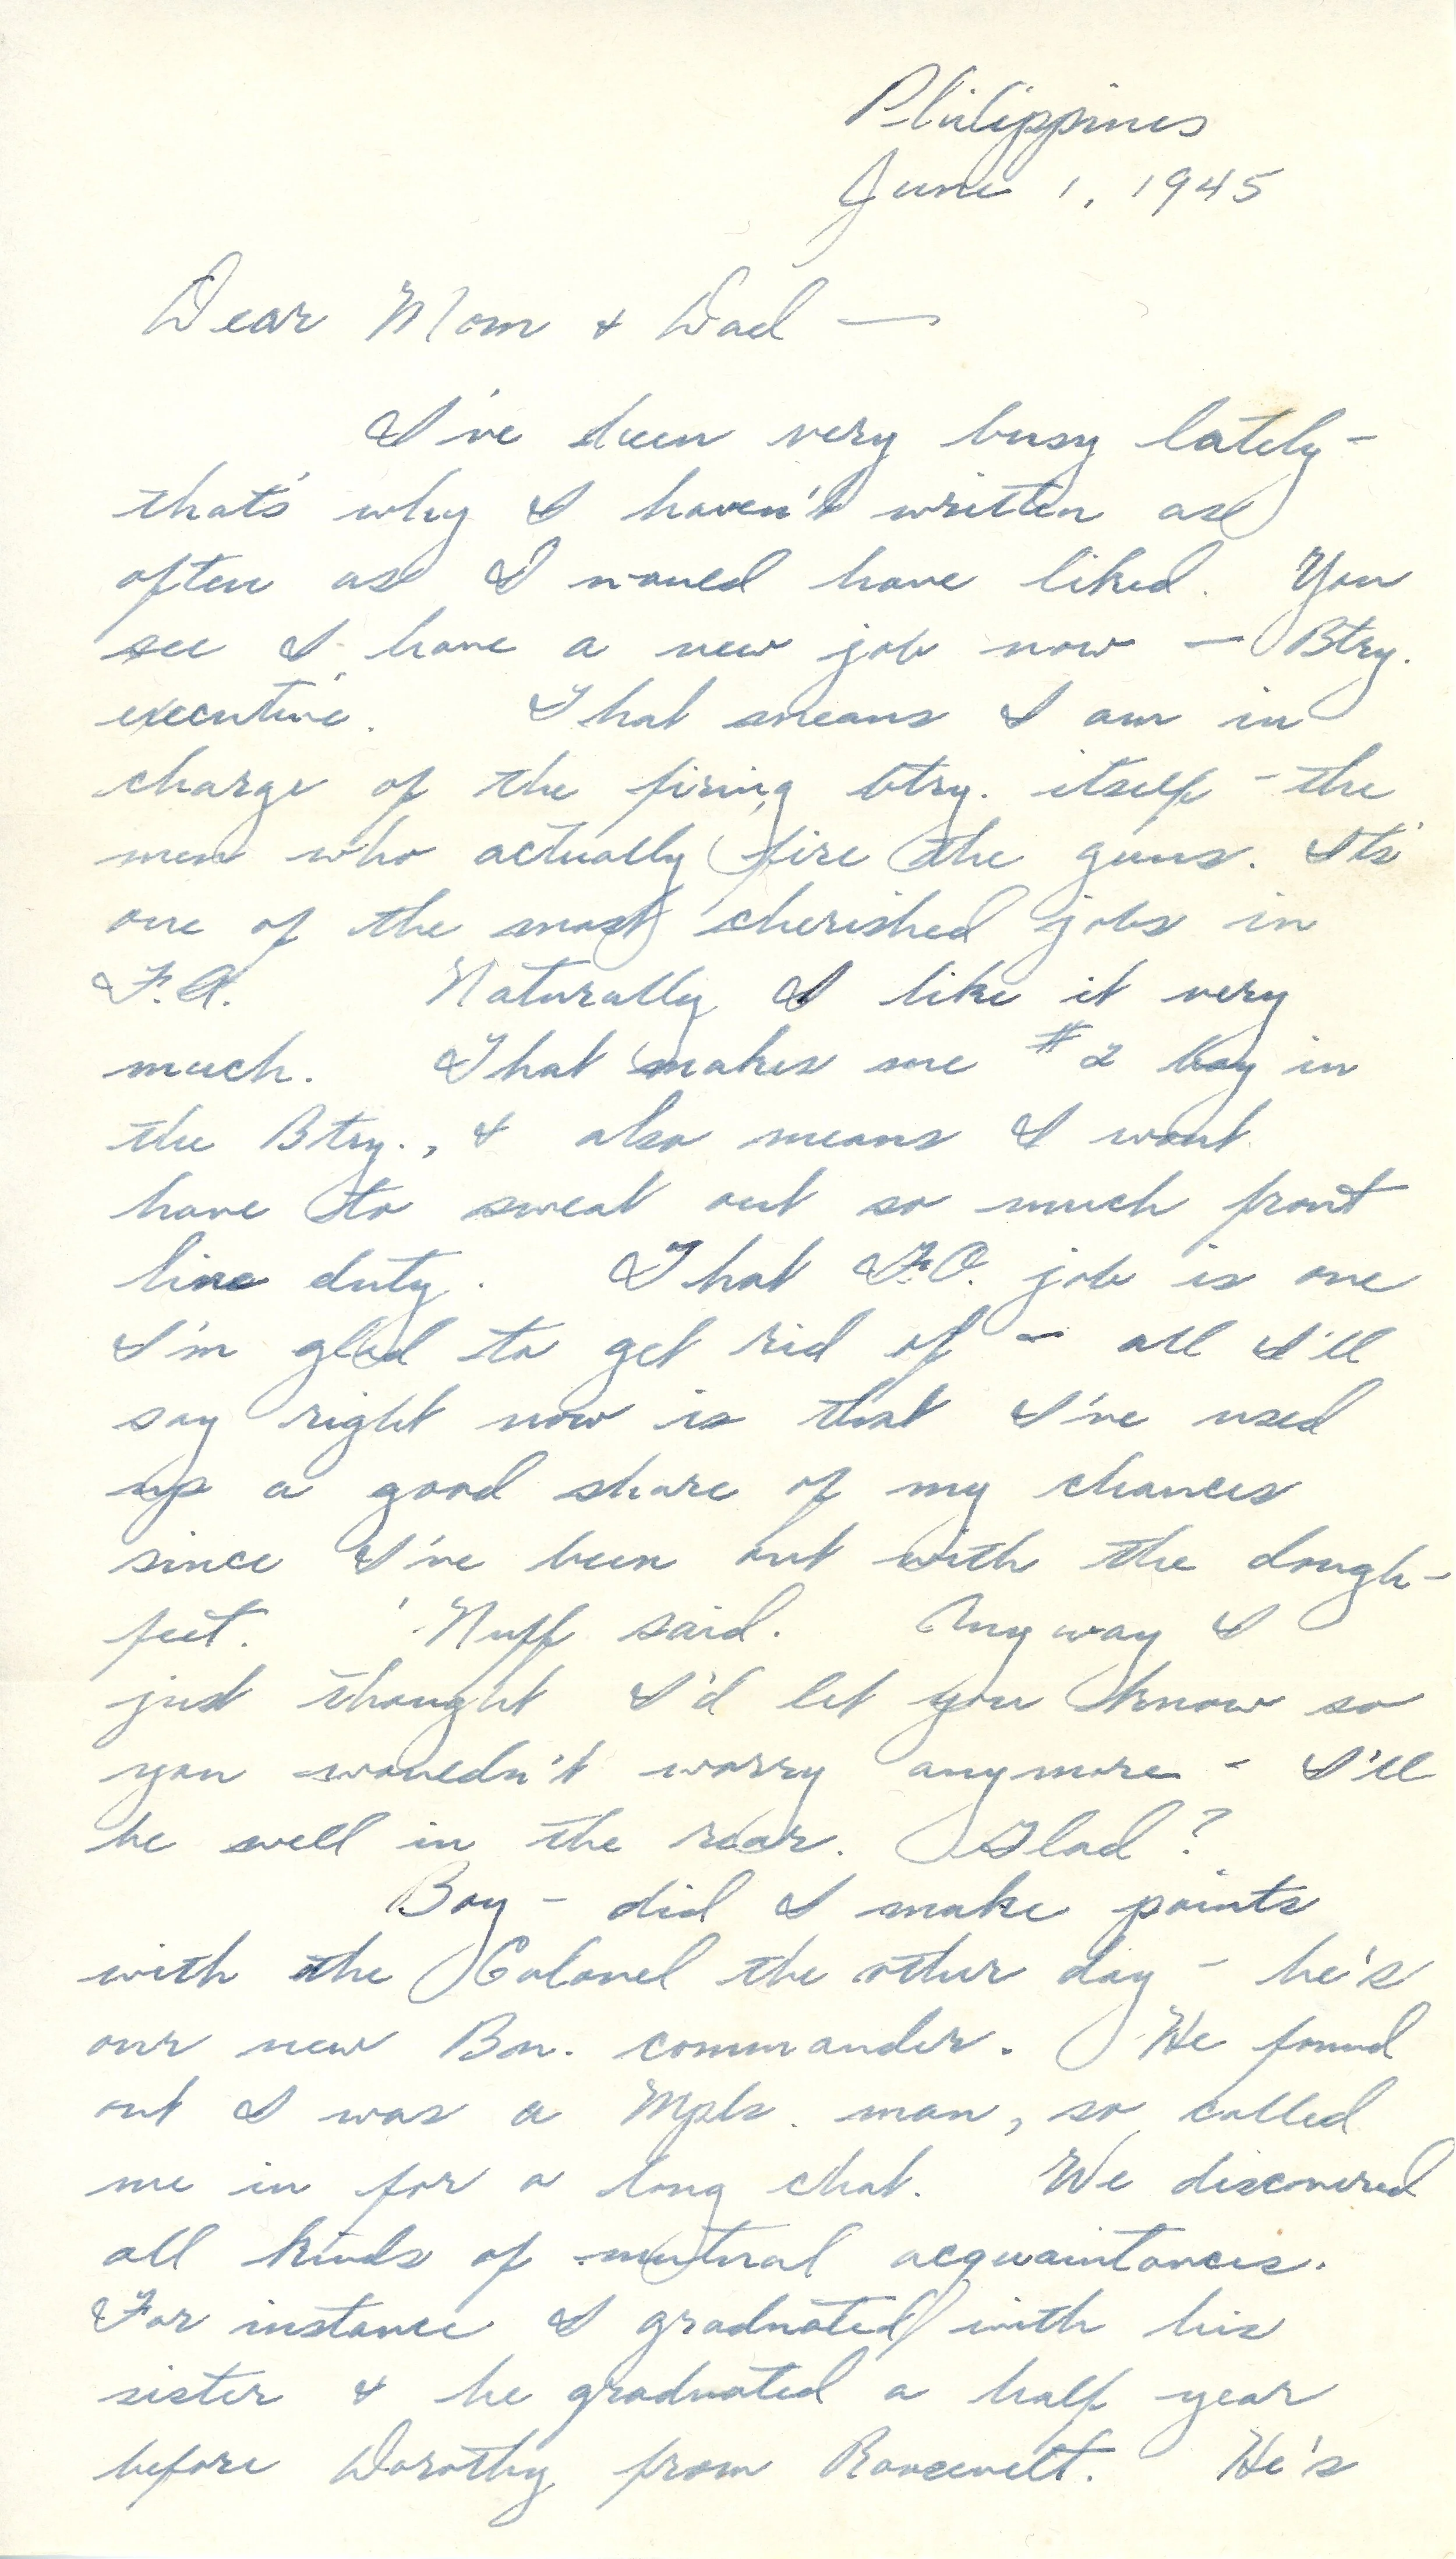 Philippines
June 1, 1945
Dear Mom & Dad —
I've been very busy lately -
that's why I haven't written as
often as I would have liked. You
see I have a new job now — Btry.
executive. That means I am in
charge of the firing btry. itself - the
men who actually fire the guns. It's
one of the most cherished jobs in
F.A. Naturally I like it very
much. That makes me #2 boy in
the Btry., & also means I wont
have to sweat out so much front
line duty. That F.O. job is one
I'm glad to get rid of — all I'll
say right now is that I've used
up a good share of my chances
since I've been out with the dough-
feet. 'Nuff said. Anyway I
just thought I'd let you know so
you wouldn't worry anymore - I'll
be well in the rear. Glad?
Boy - did I make points
with the Colonel the other day - he's
our new Bn. commander. He found
out I was a Mpls. man, so called
me in for a long chat. We discovered
all kinds of mutual acquaintances.
For instance I graduated with his
sister & he graduated a half year
before Dorothy from Roosevelt. He's